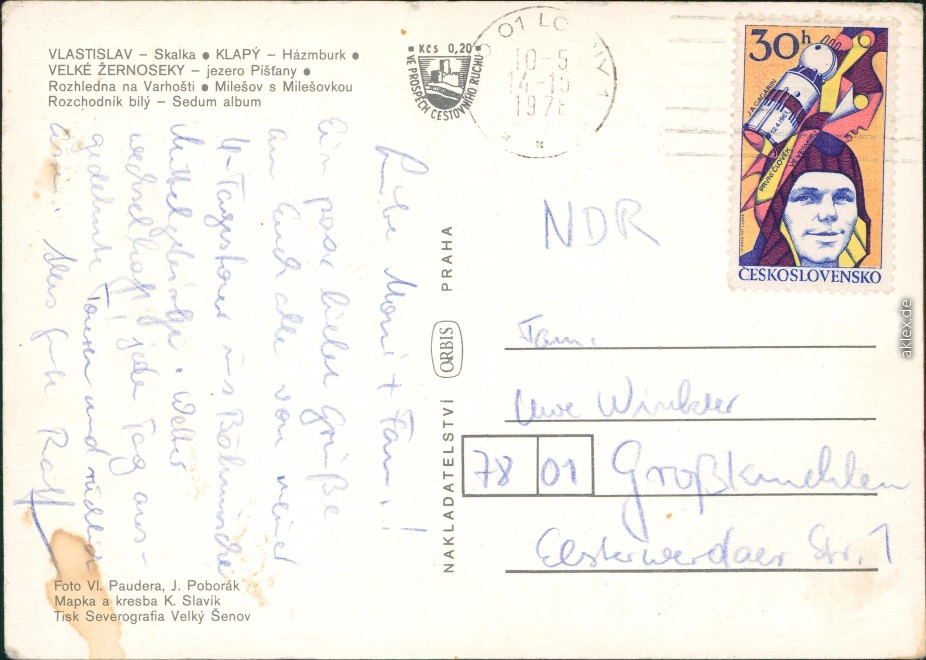 VLASTISLAV – Skalka ● KLAPÝ – Házmburk ●
VELKÉ ŽERNOSEKY – jezero Píšťany ●
Rozhledna na Varhošti ● Milešov s Milešovkou
Rozchodník bílý – Sedum album
Kčs 0,20
VE PROSPĚCH CESTOVNÍHO RUCHU
10-5
14-15
197
30h
J.A. GAGARIN
12.4.1961
PRVNÍ ČLOVĚK
VE VESMÍRU
ČESKOSLOVENSKO
Liebe Moni + Fam.!
Ein paar liebe Grüße
an Euch alle von meiner
4-Tagestour ins Böhmische
Mittelgebirge. Wetter
wechselhaft, jeder Tag aus-
gedehnte Touren und
Ralf
NAKLADATELSTVÍ ORBIS PRAHA
NDR
Fam.
Uwe Winkler
78 01 Großkmehlen
Elsterwerdaer Str. 1
Foto Vl. Paudera, J. Poborák
Mapka a kresba K. Slavík
Tisk Severografia Velký Šenov
aklex.de